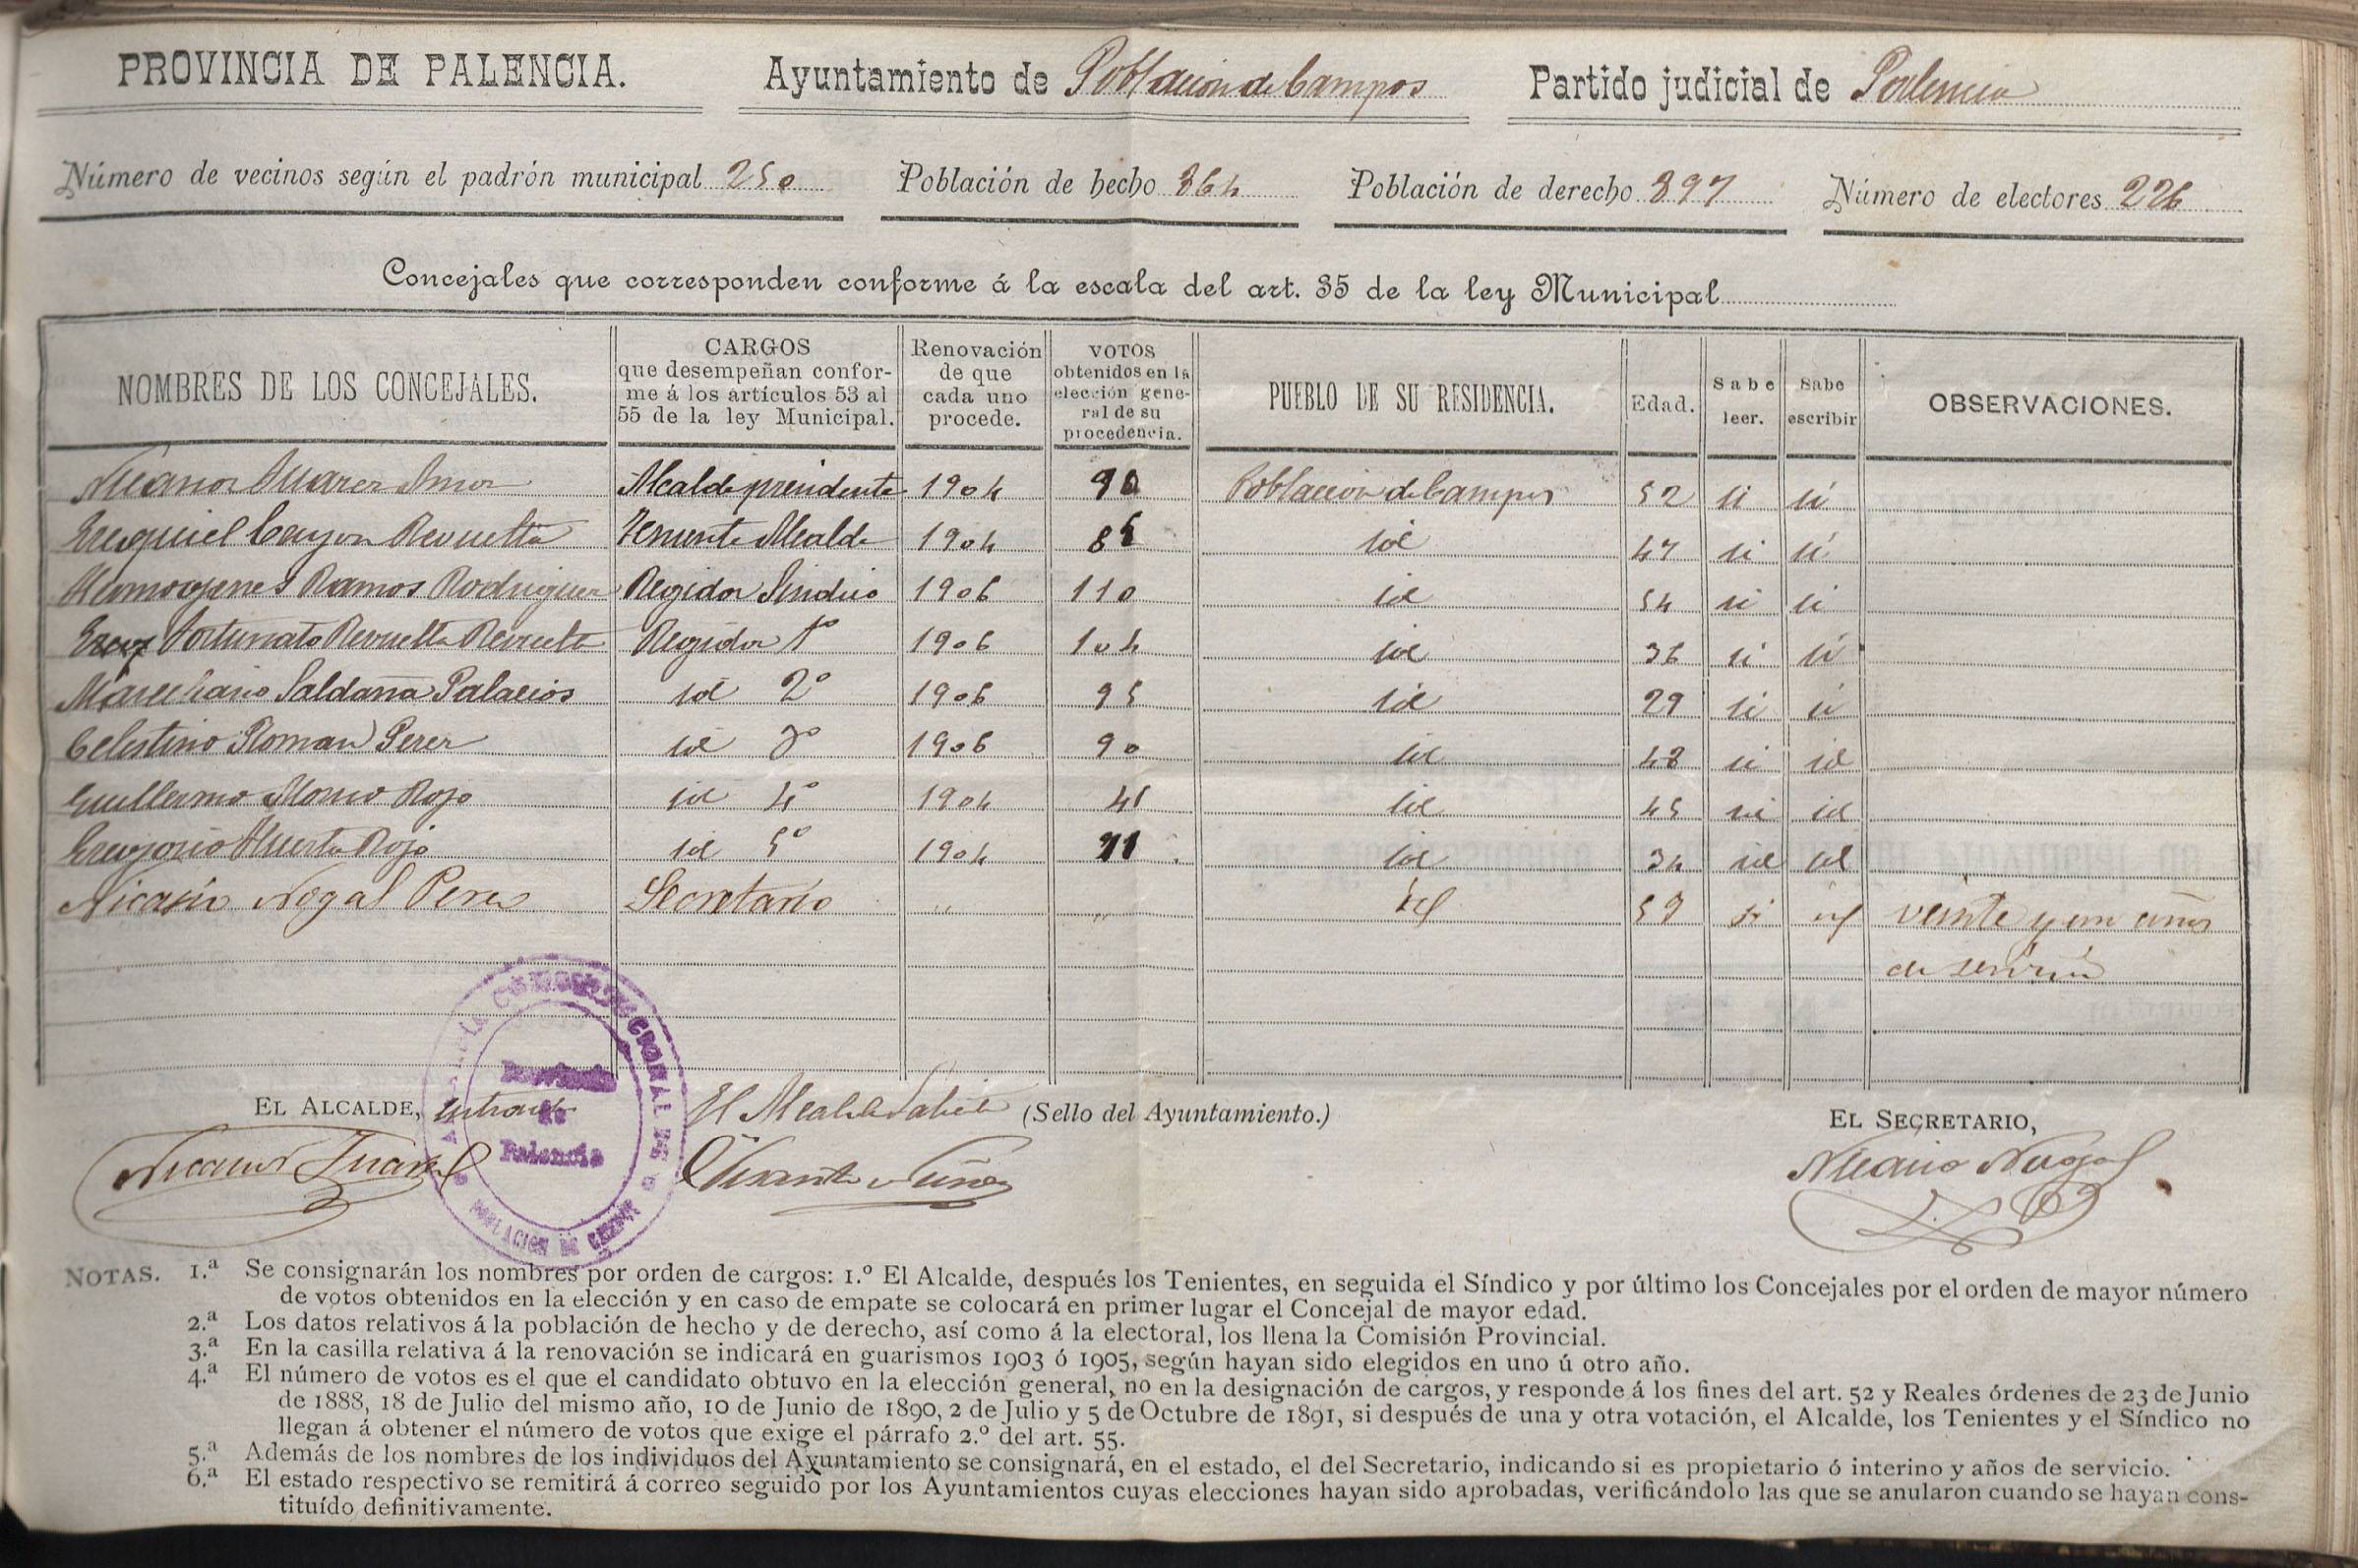 PROVINCIA DE PALENCIA. Ayuntamiento de Poblacion de Campos Partido judicial de Palencia
Número de vecinos según el padrón municipal 250 Población de hecho 864 Población de derecho 897 Número de electores 226
Concejales que corresponden conforme á la escala del art. 35 de la ley Municipal
NOMBRES DE LOS CONCEJALES. CARGOS que desempeñan conforme á los artículos 53 al 55 de la ley Municipal. Renovación de que cada uno procede. VOTOS obtenidos en la elección general de su procedencia. PUEBLO DE SU RESIDENCIA. Edad. Sabe leer. Sabe escribir OBSERVACIONES.
Nicanor Juarez Amor Alcalde presidente 1904 90 Poblacion de Campos 52 si si
Ezequiel Cayon Revuelta Teniente Alcalde 1904 85 id 47 si si
Hermogenes Ramos Rodriguez Regidor Sindico 1906 110 id 54 si si
Fortunato Revuelta Revuelta Regidor 1º 1906 104 id 36 si si
Marceliano Saldaña Palacios id 2º 1906 95 id 29 si si
Celestino Roman Perez id 3º 1906 90 id 48 si id
Guillermo Alonso Rojo id 4º 1904 id 45 si id
Gregorio Huerta Rojo id 5º 1904 71 id 34 id id
Nicasio Nogal Perez Secretario " " id 59 si id veinte y un años
de servicio
EL ALCALDE, entrante El Alcalde Saliente (Sello del Ayuntamiento.) EL SECRETARIO,
Nicanor Juarez Vicente Nuñez Nicasio Nogal
CONSTITUCIONAL DE
Provincia
de
Palencia
POBLACION DE CAMPOS
NOTAS. 1.ª Se consignarán los nombres por orden de cargos: 1.º El Alcalde, después los Tenientes, en seguida el Síndico y por último los Concejales por el orden de mayor número
de votos obtenidos en la elección y en caso de empate se colocará en primer lugar el Concejal de mayor edad.
2.ª Los datos relativos á la población de hecho y de derecho, así como á la electoral, los llena la Comisión Provincial.
3.ª En la casilla relativa á la renovación se indicará en guarismos 1903 ó 1905, según hayan sido elegidos en uno ú otro año.
4.ª El número de votos es el que el candidato obtuvo en la elección general, no en la designación de cargos, y responde á los fines del art. 52 y Reales órdenes de 23 de Junio
de 1888, 18 de Julio del mismo año, 10 de Junio de 1890, 2 de Julio y 5 de Octubre de 1891, si después de una y otra votación, el Alcalde, los Tenientes y el Síndico no
llegan á obtener el número de votos que exige el párrafo 2.º del art. 55.
5.ª Además de los nombres de los individuos del Ayuntamiento se consignará, en el estado, el del Secretario, indicando si es propietario ó interino y años de servicio.
6.ª El estado respectivo se remitirá á correo seguido por los Ayuntamientos cuyas elecciones hayan sido aprobadas, verificándolo las que se anularon cuando se hayan cons-
tituído definitivamente.